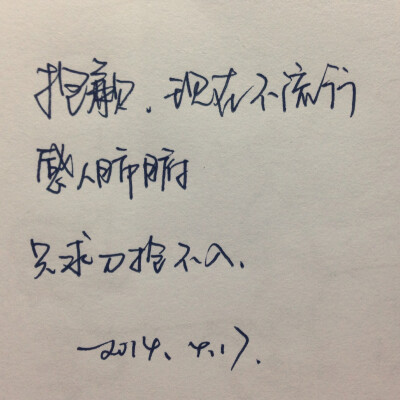 抱歉.现在不流行
感人肺腑
只求刀抢不入.
—2014.4.17.